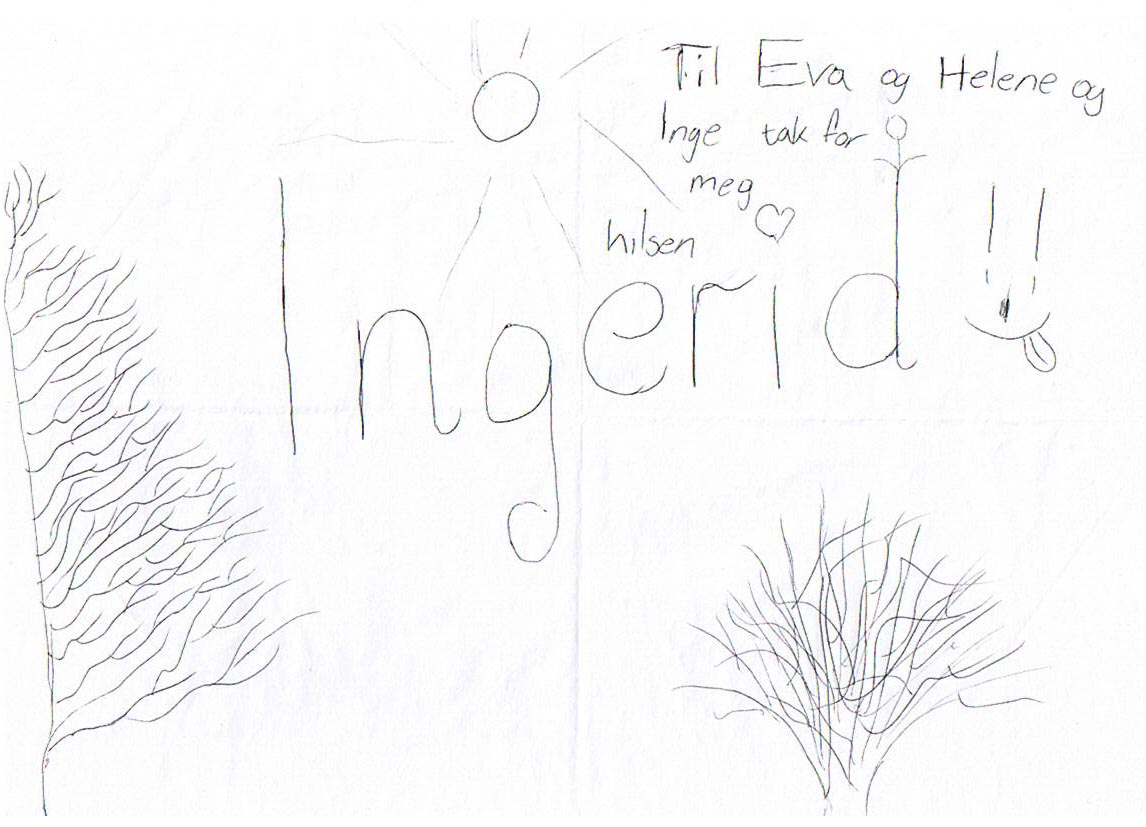 Til Eva og Helene og
Inge tak for
meg
hilsen
Ingerid